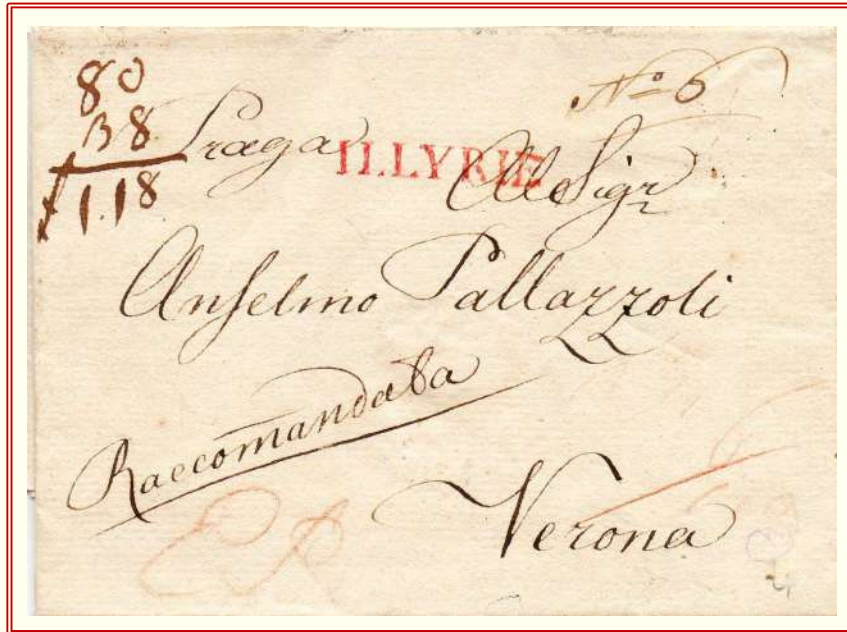 80
38
1.18
Praga
ILLYRIE
N° 6
Al Sigr
Anselmo Pallazzoli
Raccomandata
Verona